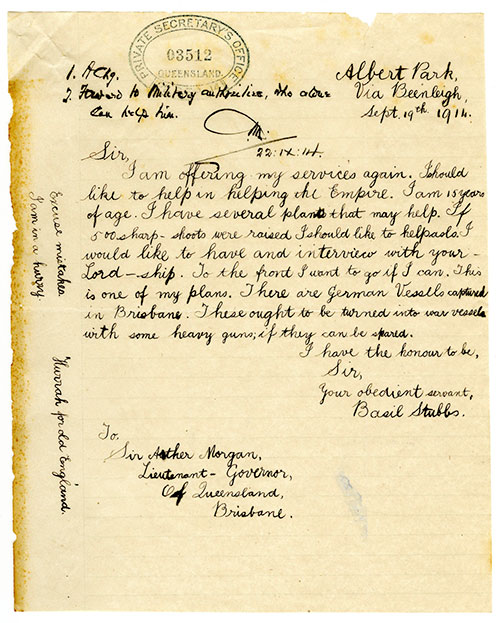 PRIVATE SECRETARY'S OFFICE
03512
QUEENSLAND
1. Ackg.
2. Forward to Military authorities, who alone
can help him.
22.IX.14.
Albert Park,
Via Beenleigh,
Sept. 19th, 1914.
Sir,
I am offering my services again. I should
like to help in helping the Empire. I am 15 years
of age. I have several plans that may help. If
500 sharp-shoots were raised I should like to help also. I
would like to have and interview with your-
Lord-ship. To the front I want to go if I can. This
is one of my plans. There are German Vessells captured
in Brisbane. These ought to be turned into war vessels
with some heavy guns; if they can be spared.
I have the honour to be,
Sir,
Your obedient servant,
Basil Stubbs.
To,
Sir Arther Morgan,
Lieutenant-Governor,
Of Queensland,
Brisbane.
Excuse mistakes
I am in a hurry
Hurrah for old England.